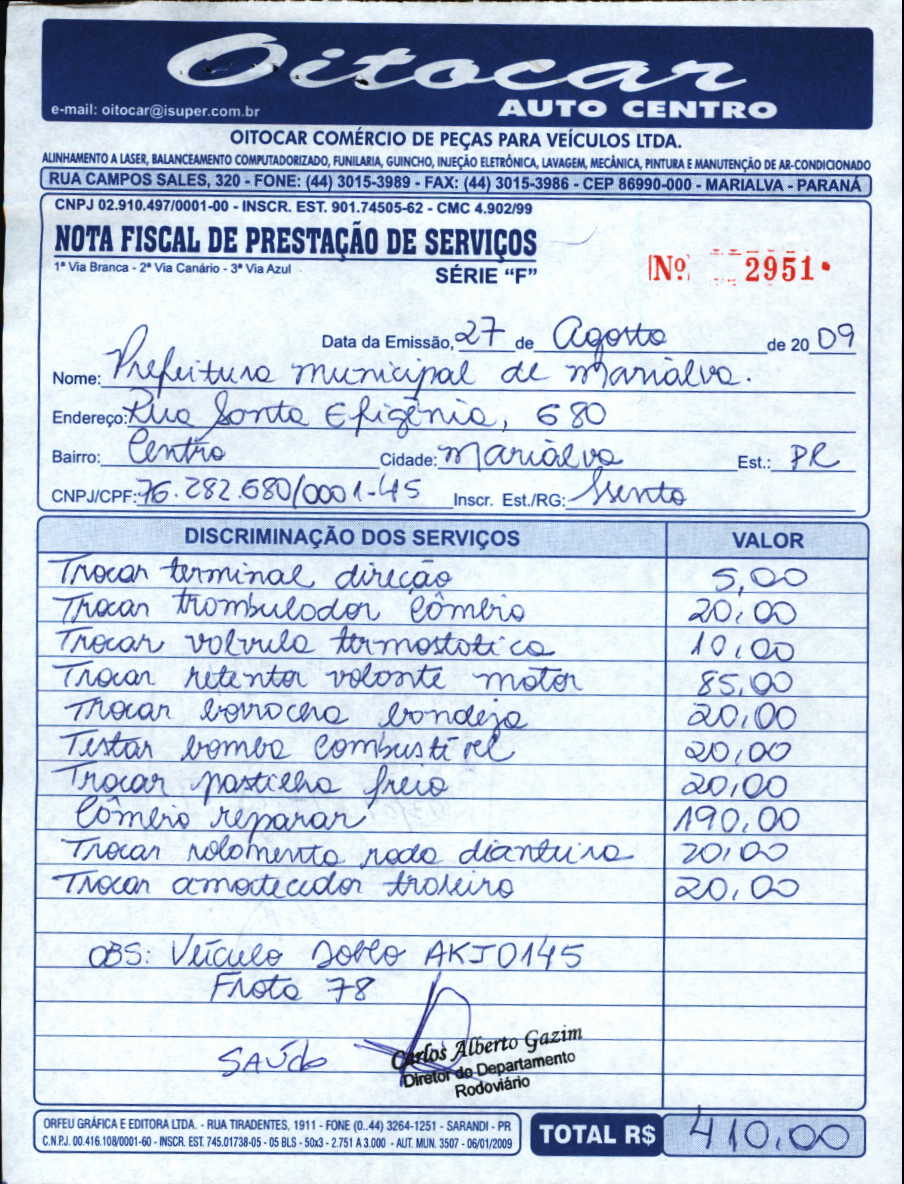 Oitocar
e-mail: oitocar@isuper.com.br
AUTO CENTRO
OITOCAR COMÉRCIO DE PEÇAS PARA VEÍCULOS LTDA.
ALINHAMENTO A LASER, BALANCEAMENTO COMPUTADORIZADO, FUNILARIA, GUINCHO, INJEÇÃO ELETRÔNICA, LAVAGEM, MECÂNICA, PINTURA E MANUTENÇÃO DE AR-CONDICIONADO
RUA CAMPOS SALES, 320 - FONE: (44) 3015-3989 - FAX: (44) 3015-3986 - CEP 86990-000 - MARIALVA - PARANÁ
CNPJ 02.910.497/0001-00 - INSCR. EST. 901.74505-62 - CMC 4.902/99
NOTA FISCAL DE PRESTAÇÃO DE SERVIÇOS
1ª Via Branca - 2ª Via Canário - 3ª Via Azul
SÉRIE "F"
Nº 2951
Data da Emissão, 27 de Agosto de 2009
Nome: Prefeitura Municipal de Marialva.
Endereço: Rua Santa Efigênia, 680
Bairro: Centro Cidade: Marialva Est.: PR
CNPJ/CPF: 76.282.680/0001-45 Inscr. Est./RG: Isento
DISCRIMINAÇÃO DOS SERVIÇOS VALOR
Trocar terminal direção 5,00
Trocar trambulador câmbio 20,00
Trocar valvula termostatica 10,00
Trocar retentor volante motor 85,00
Trocar borracha bandeja 20,00
Testar bomba combustível 20,00
Trocar pastilha freio 20,00
Câmbio reparar 190,00
Trocar rolamento roda dianteira 20,00
Trocar amortecedor traseiro 20,00
OBS: Veículo Doblo AKJ0145
Frota 78
SAÚDE
Carlos Alberto Gazim
Diretor do Departamento
Rodoviário
ORFEU GRÁFICA E EDITORA LTDA. - RUA TIRADENTES, 1911 - FONE (0..44) 3264-1251 - SARANDI - PR
C.N.P.J. 00.416.108/0001-60 - INSCR. EST. 745.01738-05 - 05 BLS - 50x3 - 2.751 A 3.000 - AUT. MUN. 3507 - 06/01/2009
TOTAL R$ 410,00